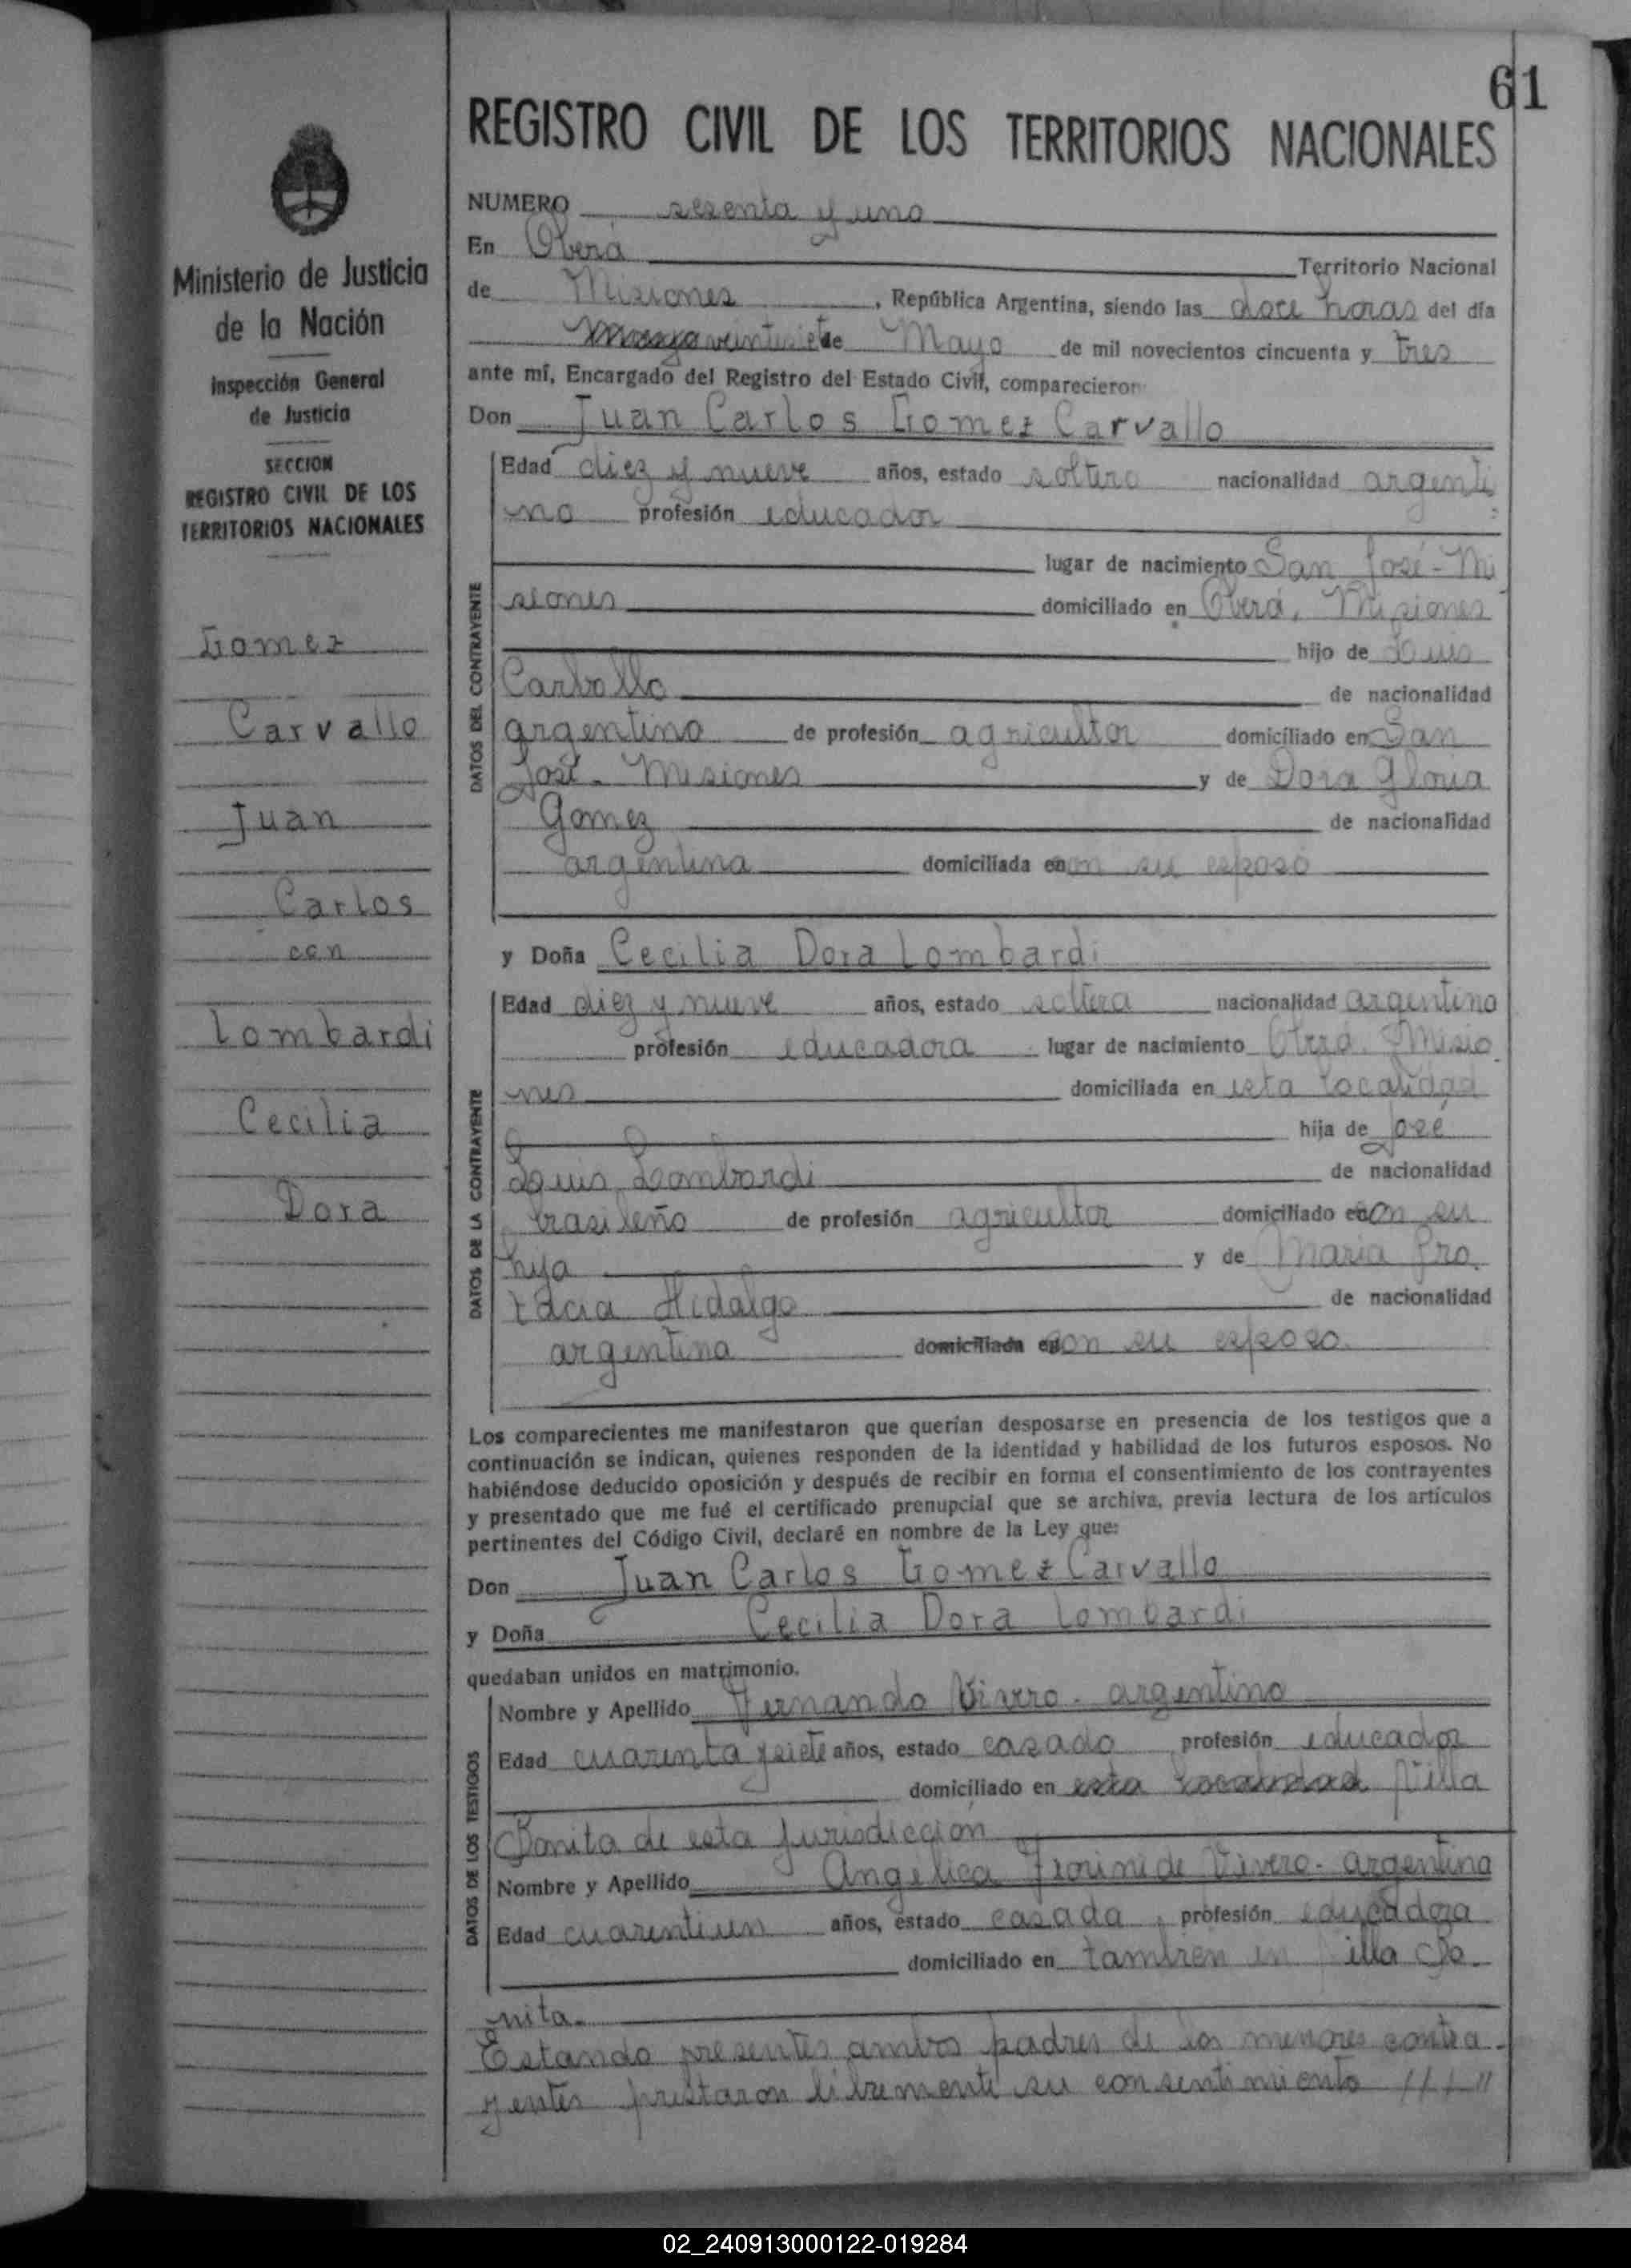 61
REGISTRO CIVIL DE LOS TERRITORIOS NACIONALES
Ministerio de Justicia
de la Nación
Inspección General
de Justicia
SECCION
REGISTRO CIVIL DE LOS
TERRITORIOS NACIONALES
Gomez
Carvallo
Juan
Carlos
con
Lombardi
Cecilia
Dora
NUMERO sesenta y uno
En Oberá Territorio Nacional
de Misiones, República Argentina, siendo las doce horas del día
veintisiete de Mayo de mil novecientos cincuenta y tres
ante mí, Encargado del Registro del Estado Civil, comparecieron
Don Juan Carlos Gomez Carvallo
DATOS DEL CONTRAYENTE
Edad diez y nueve años, estado soltero nacionalidad argenti
no profesión educador
lugar de nacimiento San José - Mi
siones domiciliado en Oberá, Misiones
hijo de Luis
Carballo de nacionalidad
argentino de profesión agricultor domiciliado en San
José - Misiones y de Dora Gloria
Gomez de nacionalidad
argentina domiciliada con su esposo
y Doña Cecilia Dora Lombardi
DATOS DE LA CONTRAYENTE
Edad diez y nueve años, estado soltera nacionalidad argentina
profesión educadora lugar de nacimiento Oberá, Misio
nes domiciliada en esta localidad
hija de José
Luis Lombardi de nacionalidad
brasileño de profesión agricultor domiciliado con su
hija y de Maria
Hidalgo de nacionalidad
argentina domiciliada con su esposo
Los comparecientes me manifestaron que querían desposarse en presencia de los testigos que a
continuación se indican, quienes responden de la identidad y habilidad de los futuros esposos. No
habiéndose deducido oposición y después de recibir en forma el consentimiento de los contrayentes
y presentado que me fué el certificado prenupcial que se archiva, previa lectura de los artículos
pertinentes del Código Civil, declaré en nombre de la Ley que:
Don Juan Carlos Gomez Carvallo
y Doña Cecilia Dora Lombardi
quedaban unidos en matrimonio.
DATOS DE LOS TESTIGOS
Nombre y Apellido Fernando Vivero - argentino
Edad cuarenta y siete años, estado casado profesión educador
domiciliado en esta localidad Villa
Bonita de esta Jurisdiccion
Nombre y Apellido Angelica Fiorini de Vivero - argentina
Edad cuarentiun años, estado casada, profesión educadora
domiciliado en tambien en Villa Bo
nita.
Estando presentes ambos padres de los menores contra-
yentes prestaron libremente su consentimiento ////"
02_240913000122-019284